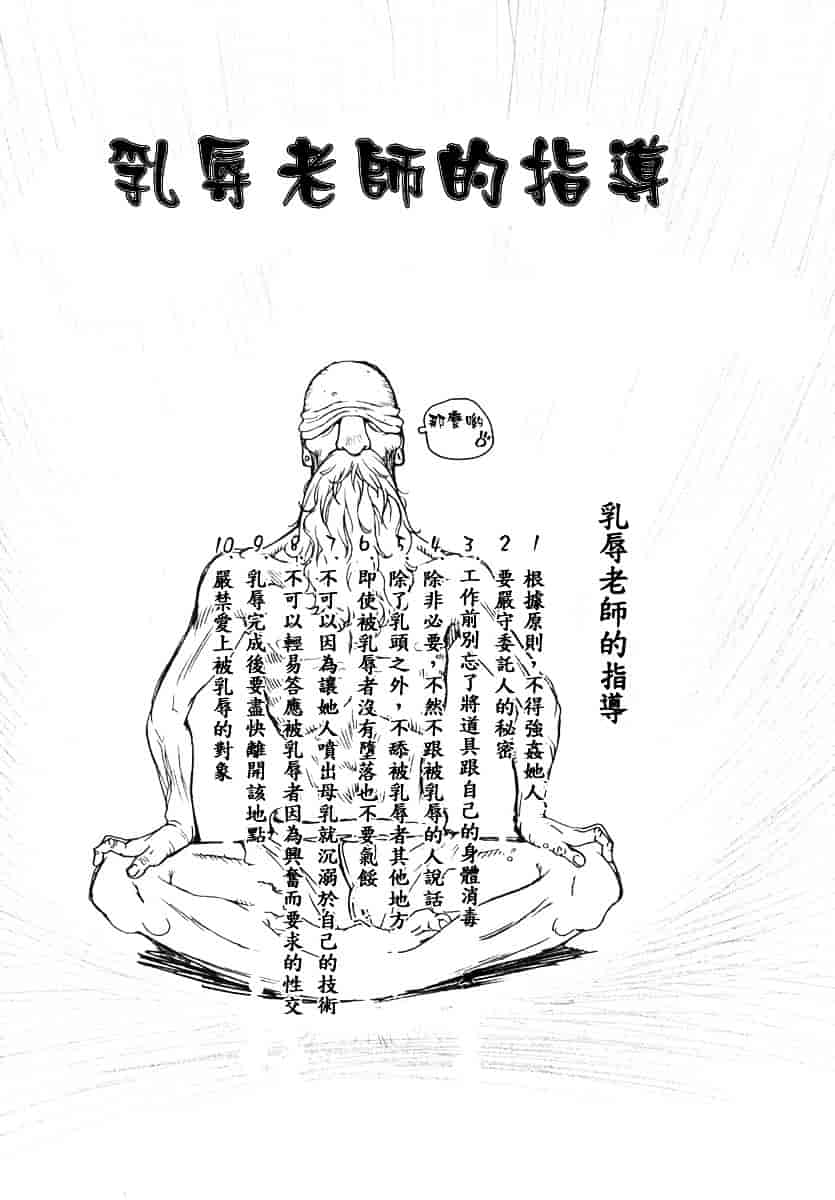 乳辱老師的指導
那麼喲
乳辱老師的指導
1 根據原則，不得強姦她人
2 要嚴守委託人的秘密
3. 工作前別忘了將道具跟自己的身體消毒
4. 除非必要，不然不跟被乳辱的人說話
5. 除了乳頭之外，不舔被乳辱者其他地方
6. 即使被乳辱者沒有墮落也不要氣餒
7. 不可以因為讓她人噴出母乳就沉溺於自己的技術
8. 不可以輕易答應被乳辱者因為興奮而要求的性交
9. 乳辱完成後要盡快離開該地點
10. 嚴禁愛上被乳辱的對象